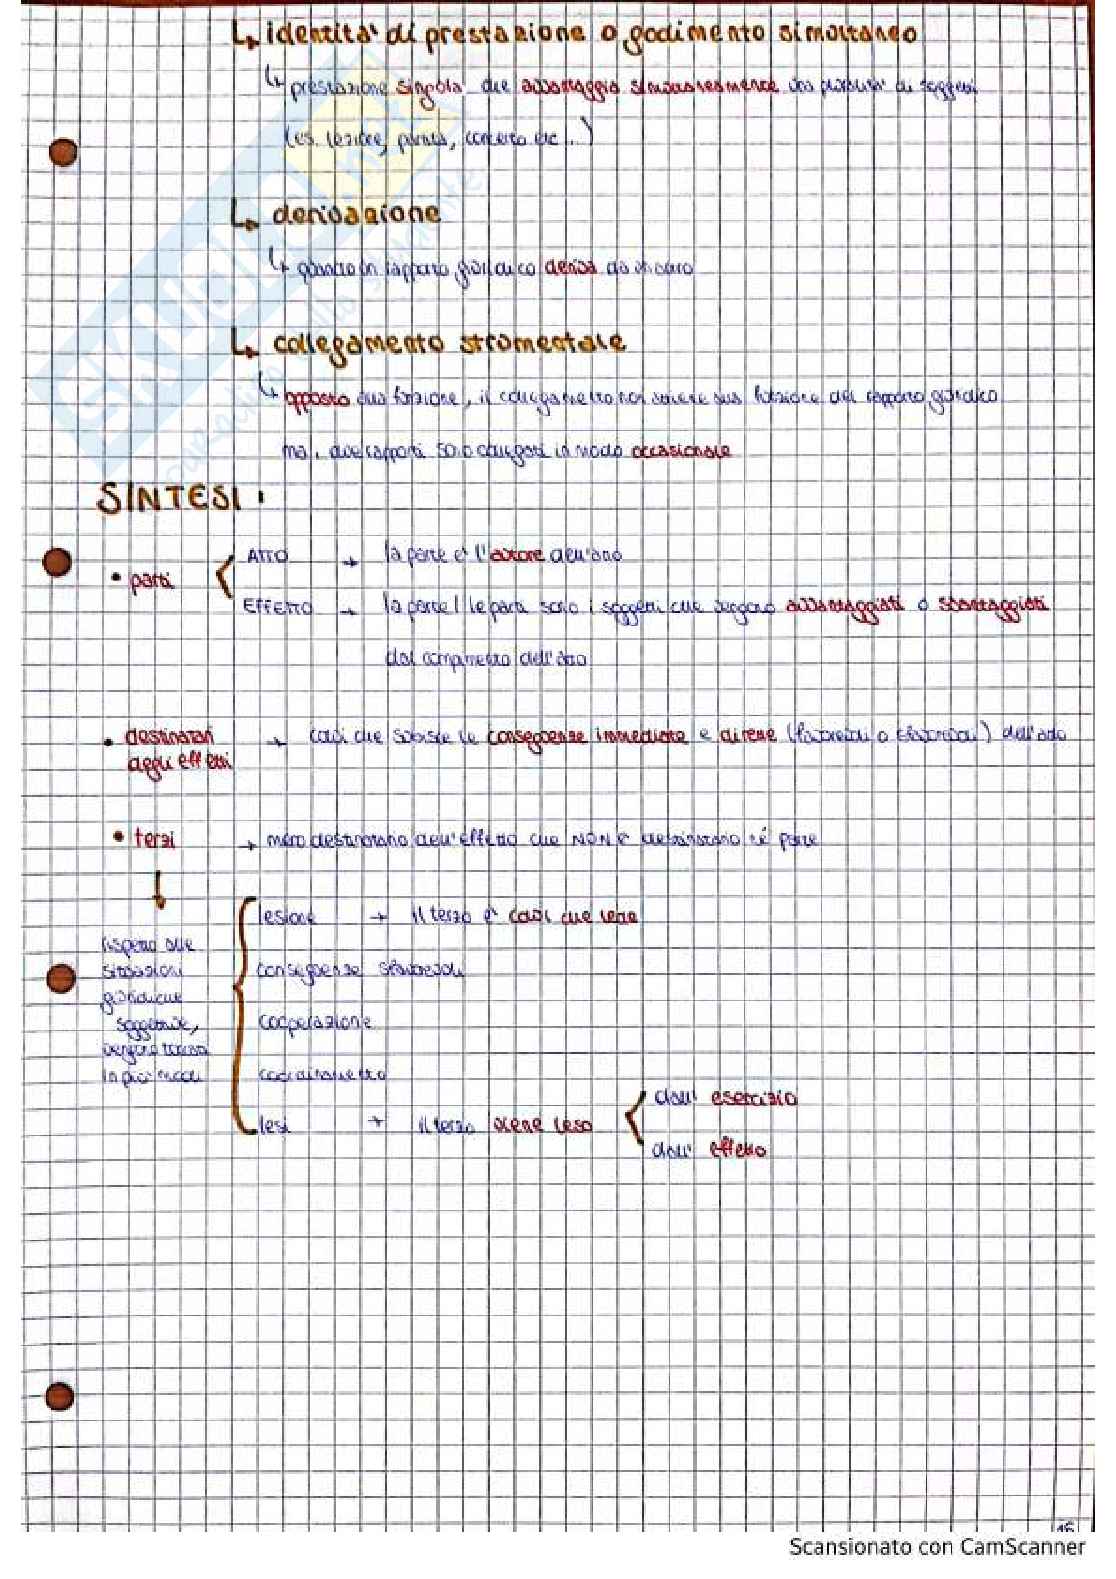 ↳ identità di prestazione o godimento simultaneo
↳ prestazione singola che avvantaggia simultaneamente una pluralità di soggetti
(es. lezione, concerto etc...)
↳ derivazione
↳ quando un rapporto giuridico deriva da un altro
↳ collegamento strumentale
↳ opposto sua funzione, il collegamento non sulla funzione del rapporto giuridico
ma, due rapporti sono collegati in modo occasionale
SINTESI:
• parti
ATTO → la parte è l'autore dell'atto
EFFETTO → la parte / le parti sono i soggetti che vengono avvantaggiati o svantaggiati
dal compimento dell'atto
• destinatari degli effetti → colui che subisce le conseguenze immediate e dirette (favorevoli o sfavorevoli) dell'atto
• terzi → mero destinatario dell'effetto che NON è destinatario né parte
↓
rispetto alle
situazioni
giuridiche
soggettive,
vengono
in più modi
lesione → il terzo è colui che lede
conseguenze sfavorevoli
cooperazione
lesi → il terzo viene leso
dall' esercizio
dall' effetto
16
Scansionato con CamScanner
SKUOLA.net